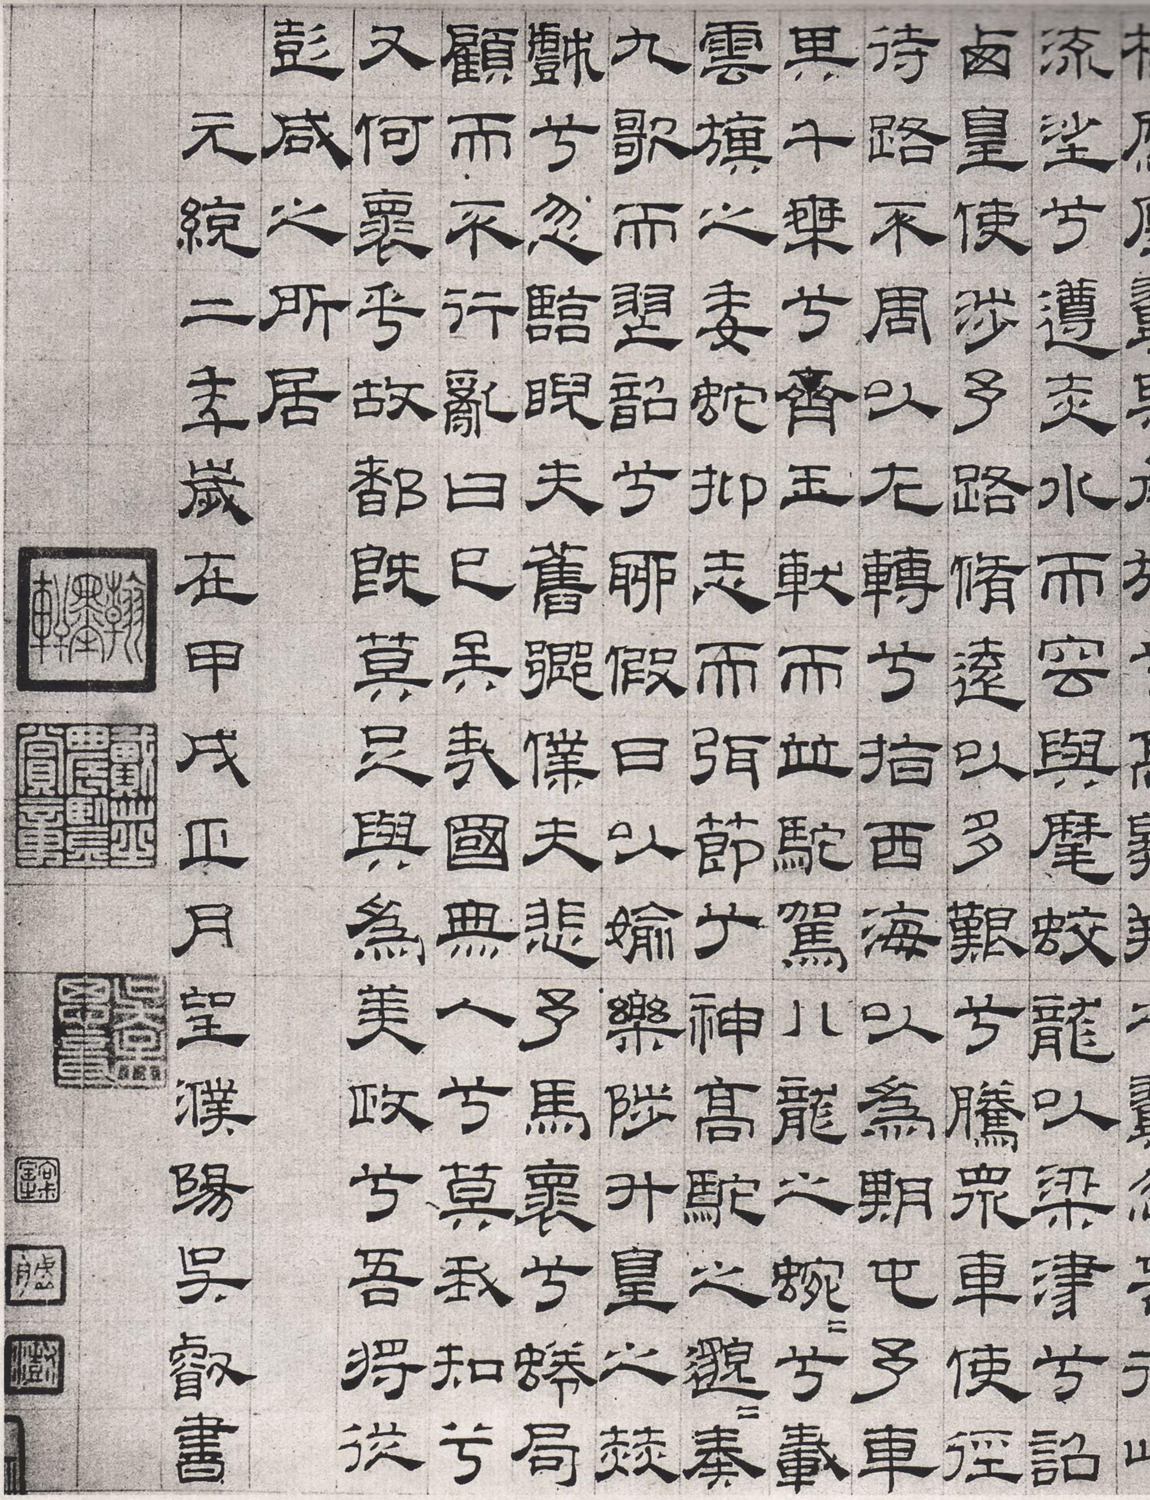 流沙兮遵赤水而容與麾蛟龍以梁津兮詔
西皇使涉予路脩遠以多艱兮騰眾車使徑
待路不周以左轉兮指西海以為期屯予車
其千乘兮齊玉軑而並馳駕八龍之蜿〻兮載
雲旗之委蛇抑志而弭節兮神高馳之邈〻奏
九歌而舞韶兮聊假日以媮樂陟升皇之赫
戲兮忽臨睨夫舊鄉僕夫悲予馬懷兮蜷局
顧而不行亂曰已吳哉國無人兮莫我知兮
又何懷乎故都既莫足與為美政兮吾將從
彭咸之所居
元統二年歲在甲戌正月望濮陽吳叡書
翰墨軒
戴芝農鑒賞章